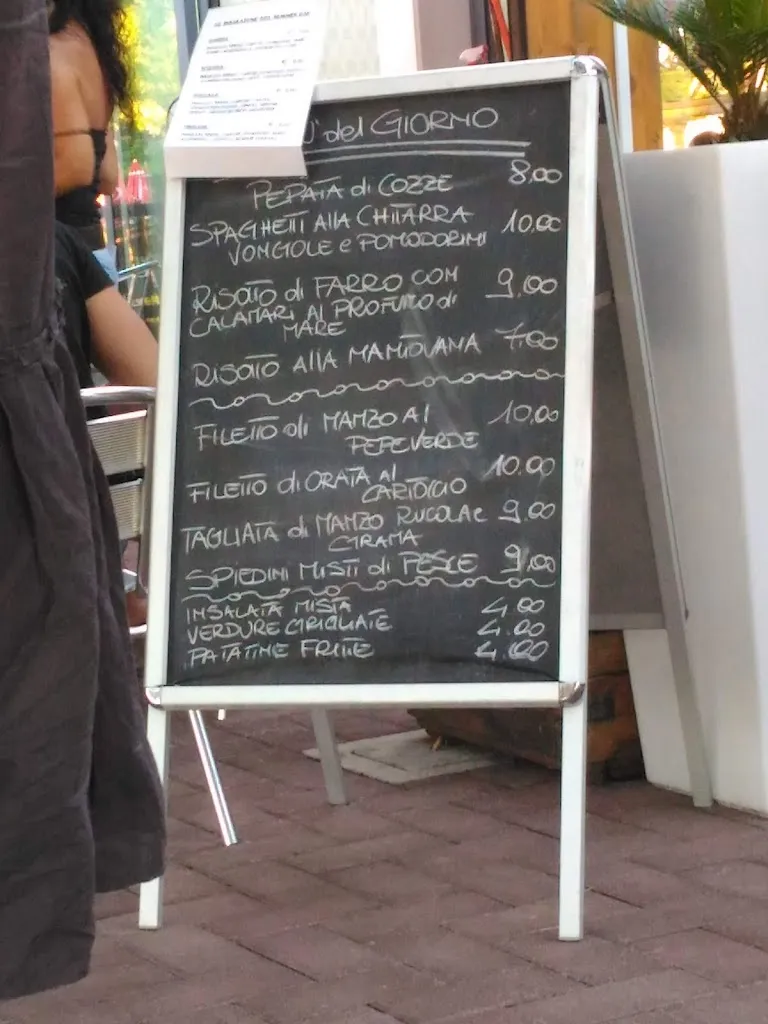 del GIORNO
PEPATA di COZZE 8,00
SPAGHETTI ALLA CHITARRA 10,00
VONGOLE e POMODORINI
RISOTTO di FARRO CON 9,00
CALAMARI AL PROFUMO di
MARE
RISOTTO ALLA MANTOVANA 7,00
FILETTO di MANZO AL 10,00
PEPE VERDE
FILETTO di ORATA AL 10.00
CARTOCCIO
TAGLIATA di MANZO RUCOLA e 9.00
GRANA
SPIEDINI MISTI di PESCE 9,00
INSALATA MISTA 4.00
VERDURE GRIGLIATE 4.00
PATATINE FRITTE 4.00